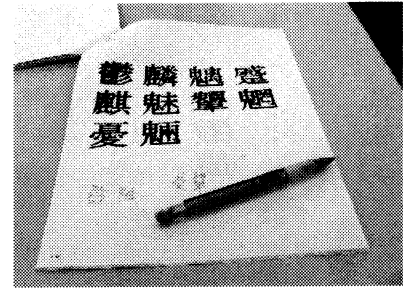 鬱 麟 魑 蹙
麒 魅 顰 魍
憂 魎